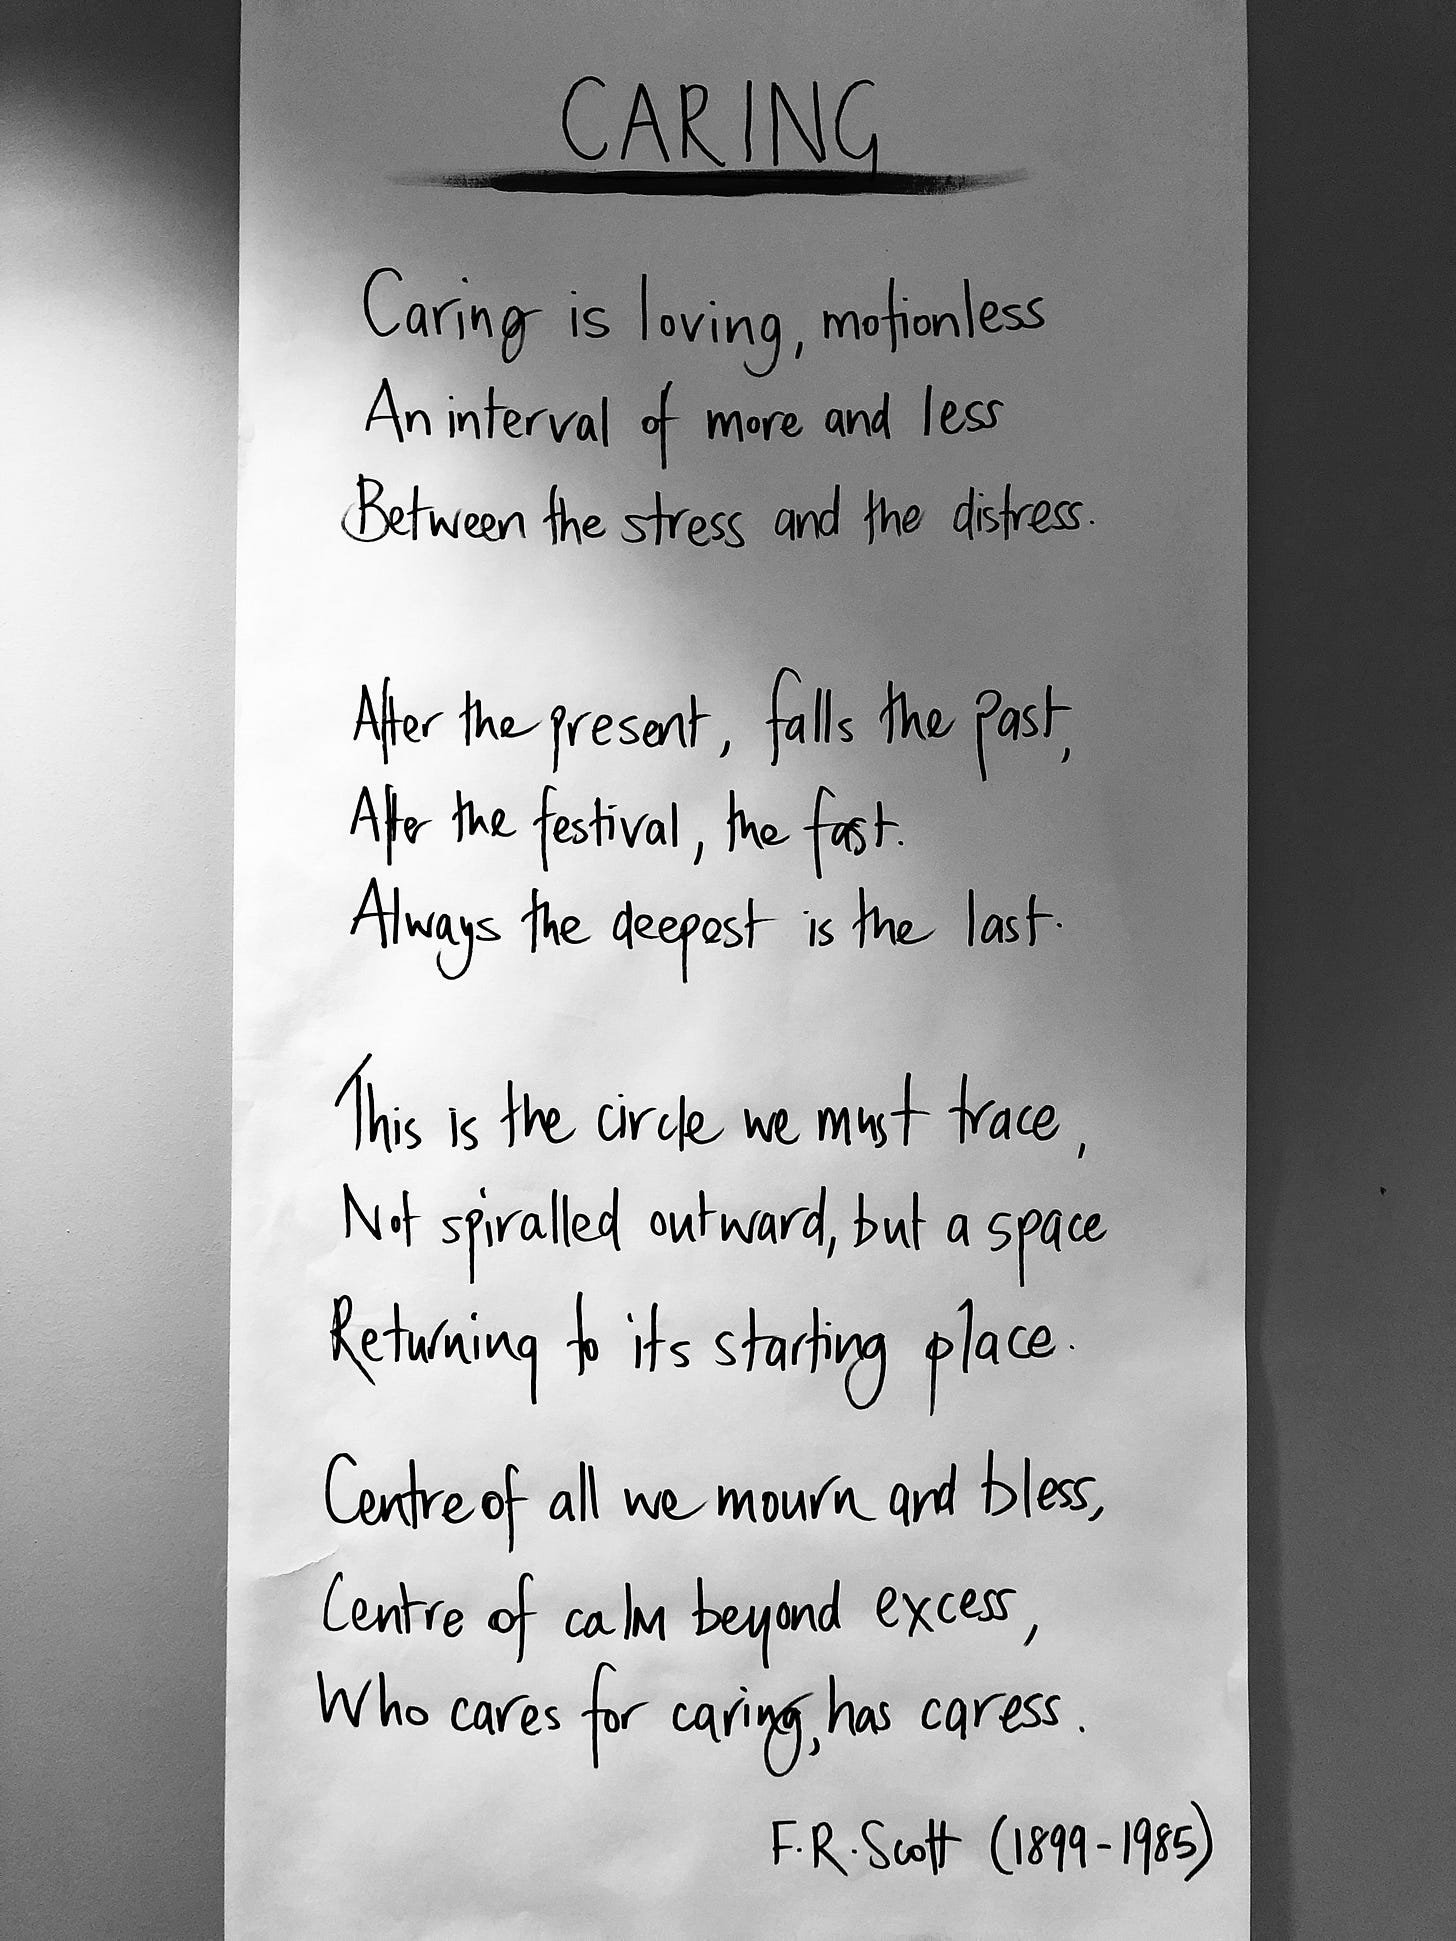 CARING
Caring is loving, motionless
An interval of more and less
Between the stress and the distress.
After the present, falls the past,
After the festival, the fast.
Always the deepest is the last.
This is the circle we must trace,
Not spiralled outward, but a space
Returning to its starting place.
Centre of all we mourn and bless,
Centre of calm beyond excess,
Who cares for caring, has caress.
F.R.Scott (1899-1985)